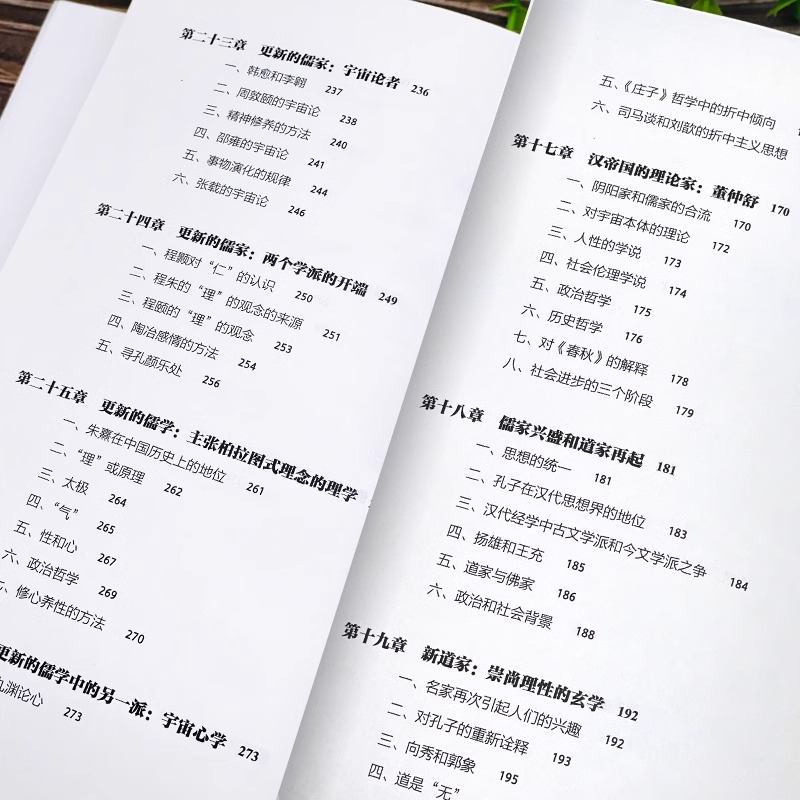 第二十三章 更新的儒家：宇宙论者 236
一、韩愈和李翱 237
二、周敦颐的宇宙论 238
三、精神修养的方法 240
四、邵雍的宇宙论 241
五、事物演化的规律 244
六、张载的宇宙论 246
第二十四章 更新的儒家：两个学派的开端 249
一、程颢对“仁”的认识 250
二、程朱的“理”的观念的来源 251
三、程颐的“理”的观念 253
四、陶冶感情的方法 254
五、寻孔颜乐处 256
第二十五章 更新的儒学：主张柏拉图式理念的理学
一、朱熹在中国历史上的地位 261
二、“理”或原理 262
三、太极 264
四、“气” 265
五、性和心 267
六、政治哲学 269
七、修心养性的方法 270
更新的儒学中的另一派：宇宙心学 273
九渊论心 273
五、《庄子》哲学中的折中倾向
六、司马谈和刘歆的折中主义思想
第十七章 汉帝国的理论家：董仲舒 170
一、阴阳家和儒家的合流 170
二、对宇宙本体的理论 172
三、人性的学说 173
四、社会伦理学说 174
五、政治哲学 175
六、历史哲学 176
七、对《春秋》的解释 178
八、社会进步的三个阶段 179
第十八章 儒家兴盛和道家再起 181
一、思想的统一 181
二、孔子在汉代思想界的地位 183
三、汉代经学中古文学派和今文学派之争 184
四、扬雄和王充 185
五、道家与佛家 186
六、政治和社会背景 188
第十九章 新道家：崇尚理性的玄学 192
一、名家再次引起人们的兴趣 192
二、对孔子的重新诠释 193
三、向秀和郭象 195
四、道是“无”